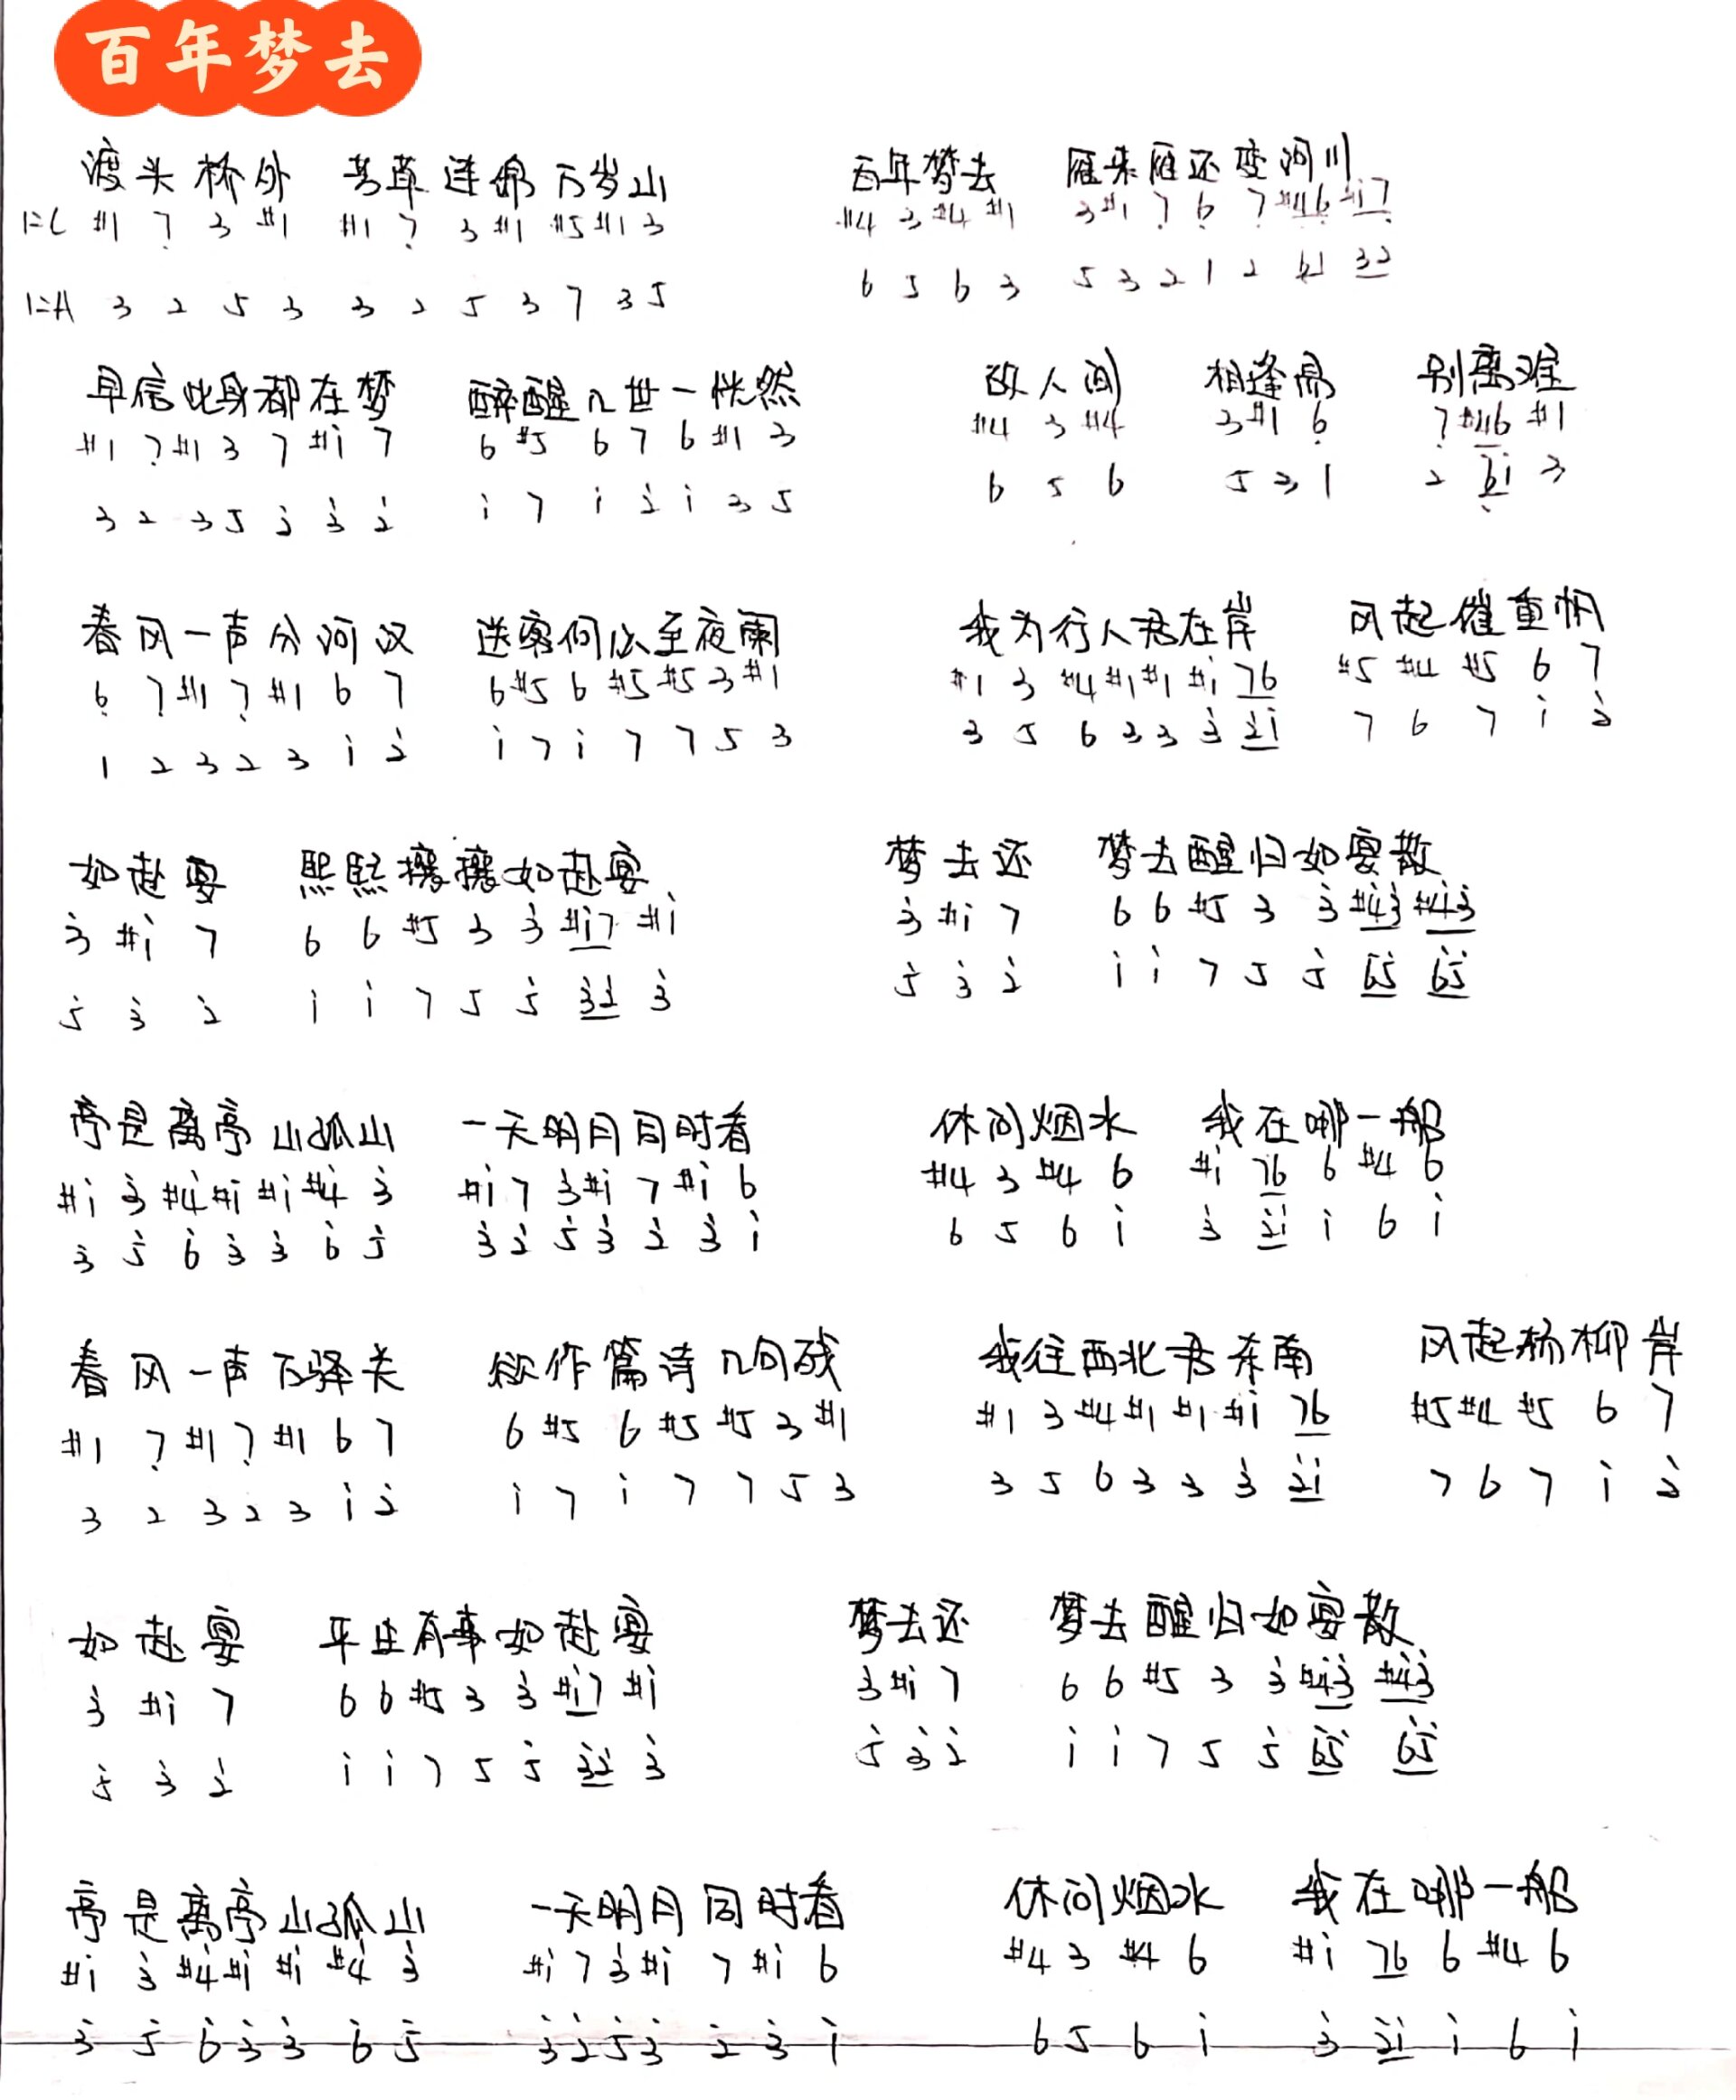 百年梦去
渡头桥外 芳草连绵万岁山 百年梦去 雁来雁还变河川
1=C #1 7̣ 3 #1 #1 7̣ 3 #1 #5 #1 3 #4 3 #4 #1 3 #1 7̣ 6̣ 7̣ #4̣6̣ #17̣
1=A 3 2 5 3 3 2 5 3 7 3 5 6 5 6 3 5 3 2 1 2 6̣1 32
早信此身都在梦 醉醒几世一恍然 故人间 相逢易 别离难
#1 7̣ #1 3 7 #i 7 6 #5 6 7 6 #1 3 #4 3 #4 3 #1 6̣ 7̣ #46 #1
3 2 3 5 2̇ 3̇ 2̇ i 7 i 2̇ i 3 5 6 5 6 5 3 1 2 6̣i 3
春风一声分河汉 送客何以至夜阑 我为行人君在岸 风起催重帆
6̣ 7̣ #1 7̣ #1 6 7 6 #5 6 #5 #5 3 #1 #1 3 #4 #1 #1 #i 76 #5 #4 #5 6 7
1 2 3 2 3 i 2̇ i 7 i 7 7 5 3 3 5 6 3 3 3̇ 2̇i 7 6 7 i 2̇
如赴宴 熙熙攘攘如赴宴 梦去还 梦去醒归如宴散
3̇ #i 7 6 6 #5 3 3̇ #i7 #i 3̇ #i 7 6 6 #5 3 3̇ #4̇3̇ #4̇3̇
5̇ 3̇ 2̇ i i 7 5 5̇ 3̇2̇ 3̇ 5̇ 3̇ 2̇ i i 7 5 5̇ 6̇5̇ 6̇5̇
亭是离亭山孤山 一天明月同时看 休问烟水 我在哪一船
#i 3̇ #4̇ #i #i #4̇ 3̇ #i 7 3̇ #i 7 #i 6 #4 3 #4 6 #i 76 6 #4 6
3̇ 5̇ 6̇ 3̇ 3̇ 6̇ 5̇ 3̇ 2̇ 5̇ 3̇ 2̇ 3̇ i 6 5 6 i 3̇ 2̇i i 6 i
春风一声下驿关 欲作篇诗几句残 我往西北君东南 风起杨柳岸
#1 7̣ #1 7̣ #1 6 7 6 #5 6 #5 #5 3 #1 #1 3 #4 #1 #1 #i 76 #5 #4 #5 6 7
3 2 3 2 3 i 2̇ i 7 i 7 7 5 3 3 5 6 3 3 3̇ 2̇i 7 6 7 i 2̇
如赴宴 平生有事如赴宴 梦去还 梦去醒归如宴散
3̇ #i 7 6 6 #5 3 3̇ #i7 #i 3̇ #i 7 6 6 #5 3 3̇ #4̇3̇ #4̇3̇
5̇ 3̇ 2̇ i i 7 5 5̇ 3̇2̇ 3̇ 5̇ 3̇ 2̇ i i 7 5 5̇ 6̇5̇ 6̇5̇
亭是离亭山孤山 一天明月同时看 休问烟水 我在哪一船
#i 3̇ #4̇ #i #i #4̇ 3̇ #i 7 3̇ #i 7 #i 6 #4 3 #4 6 #i 76 6 #4 6
3̇ 5̇ 6̇ 3̇ 3̇ 6̇ 5̇ 3̇ 2̇ 5̇ 3̇ 2̇ 3̇ i 6 5 6 i 3̇ 2̇i i 6 i